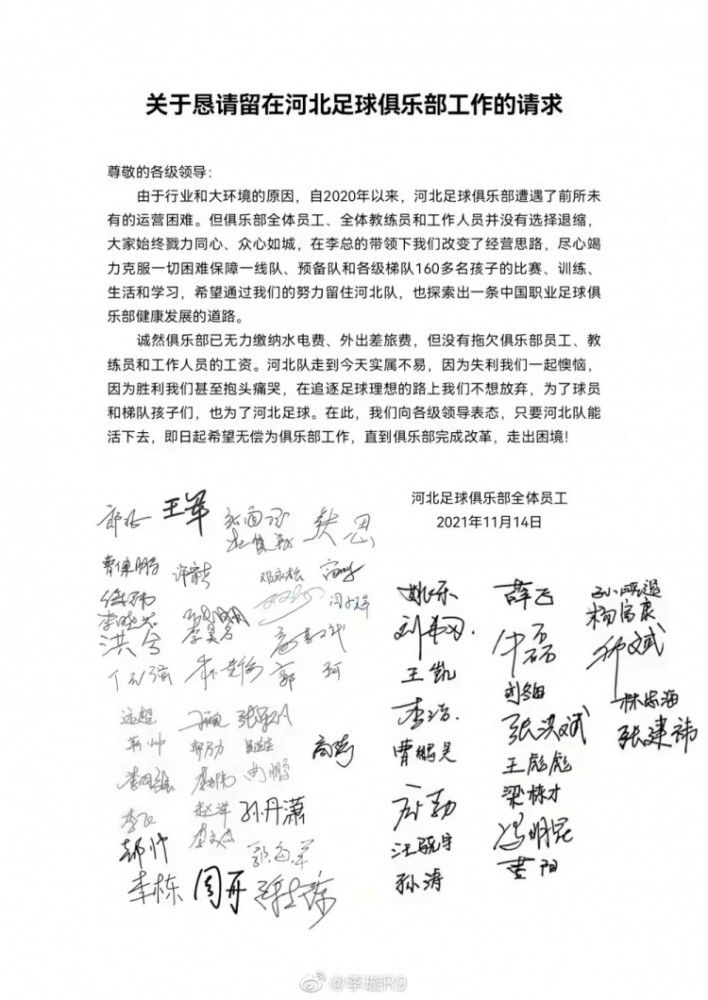 关于恳请留在河北足球俱乐部工作的请求
尊敬的各级领导：
由于行业和大环境的原因，自2020年以来，河北足球俱乐部遭遇了前所未
有的运营困难。但俱乐部全体员工、全体教练员和工作人员并没有选择退缩，
大家始终戮力同心、众心如城，在李总的带领下我们改变了经营思路，尽心竭
力克服一切困难保障一线队、预备队和各级梯队160多名孩子的比赛、训练、
生活和学习，希望通过我们的努力留住河北队，也探索出一条中国职业足球俱
乐部健康发展的道路。
诚然俱乐部已无力缴纳水电费、外出差旅费，但没有拖欠俱乐部员工、教
练员和工作人员的工资。河北队走到今天实属不易，因为失利我们一起懊恼，
因为胜利我们甚至抱头痛哭，在追逐足球理想的路上我们不想放弃，为了球员
和梯队孩子们，也为了河北足球。在此，我们向各级领导表态，只要河北队能
活下去，即日起希望无偿为俱乐部工作，直到俱乐部完成改革，走出困境！
河北足球俱乐部全体员工
2021年11月14日
王军
姚乐
薛飞
杨富康
洪兮
王凯
郭 珂
李浩
张洪斌
林忠海
曹鹏昊
张建祎
王彪彪
梁栋才
赵洋
孙丹潇
冯明昆
黄阳
孙涛
郝帅
李栋
周丹
@李璇R9